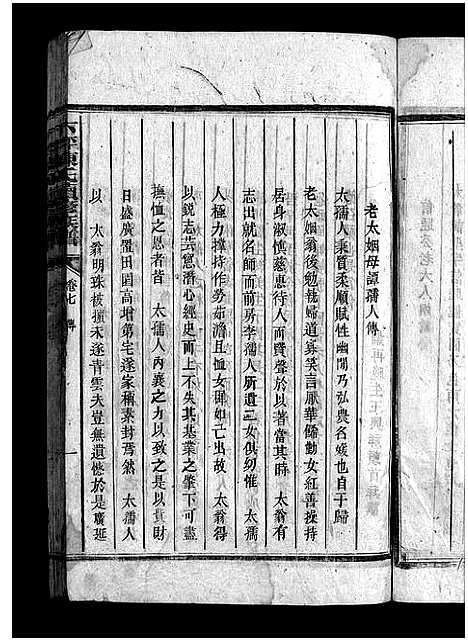 老太姻母譚孺人傳
太孺人秉質柔順賦性幽閒乃弘農名媛也自于歸
老太姻翁後勉執婦道寡笑言厭華餙勤女紅善操持
居身淑慎慈惠待人而賢聲於以著當其時 太翁有
志出就名師而前房李孺人所遺二女俱幼惟 太孺
人極力撐持作勞茹澹且恤女卹如己出故 太翁得
以銳志芸窓潛心經史而上不失其基業之肇下可盡
撫恤之恩者皆 太孺人內襄之力以致之是以貲財
日盛廣置田園高增第宅遂家稱素封焉然 太孺人
以 太翁明珠被擯未遂青雲夫豈無遺憾於是廣延
卷七 傳
一